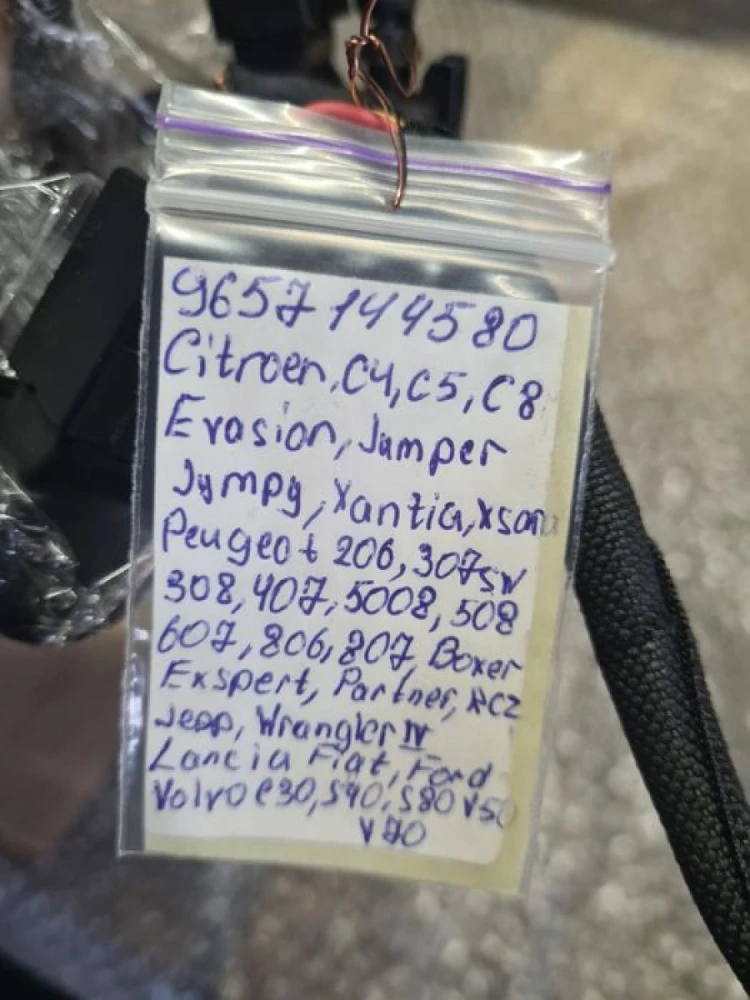 9657144580
Citroen, C4, C5, C8
Evasion, Jumper
Jympy, Xantia, Xsara
Peugeot 206, 307sw
308, 407, 5008, 508
607, 806, 807, Boxer
Exspert, Partner, RCZ
Jeep, Wrangler IV
Lancia Fiat, Ford
Volvo C30, S40, S80 V50
V70